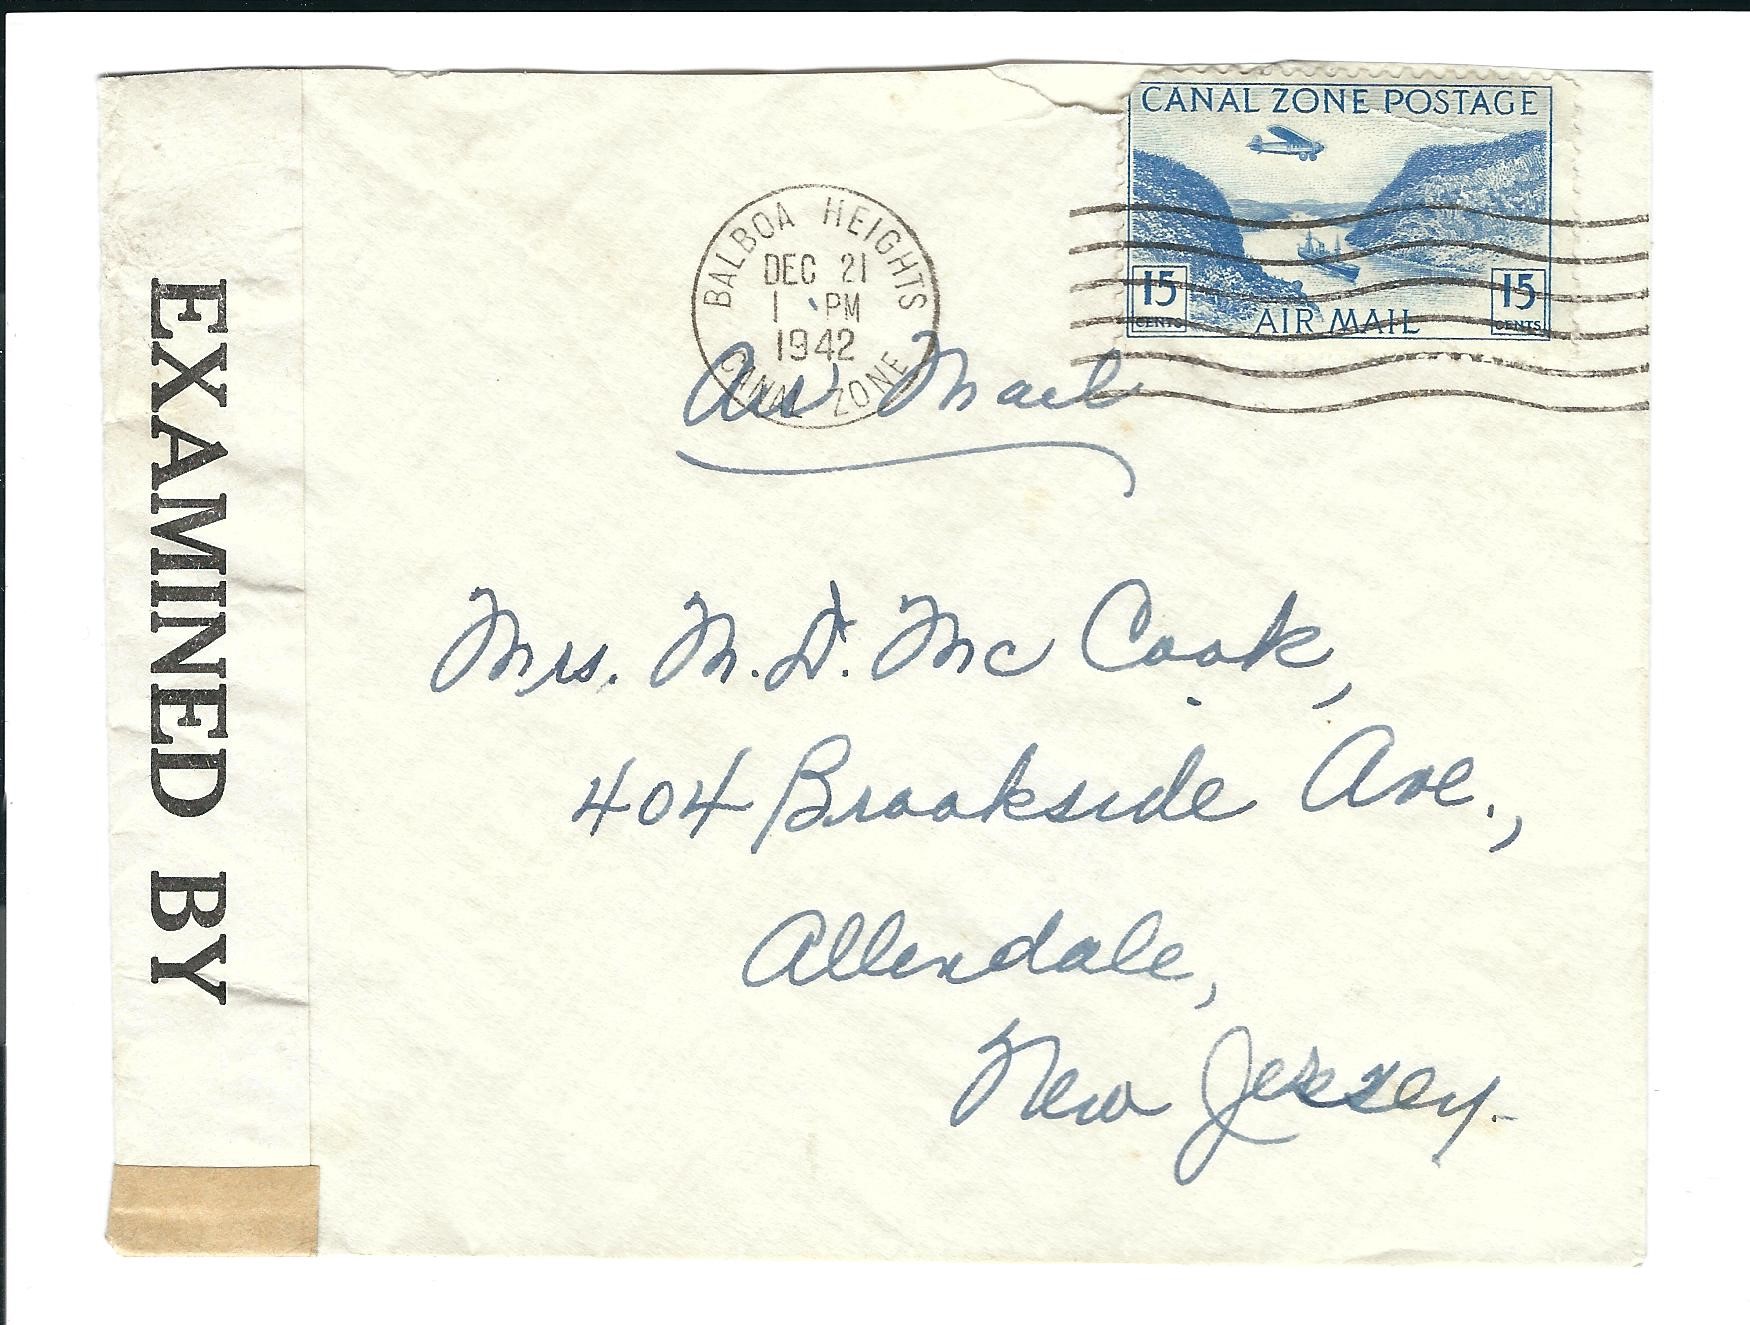 CANAL ZONE POSTAGE
15 CENTS
AIR MAIL
15 CENTS
BALBOA HEIGHTS
DEC 21
1 PM
1942
CANAL ZONE
Air Mail
Mrs. M. D. Mc Cook,
404 Brookside Ave.,
Allendale,
New Jersey.
EXAMINED BY